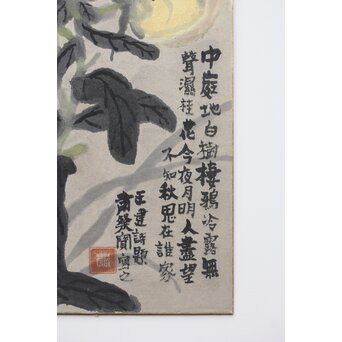 中庭地白樹棲鴉冷露無
聲濕桂花今夜月明人盡望
不知秋思在誰家
王建詩題
寫之